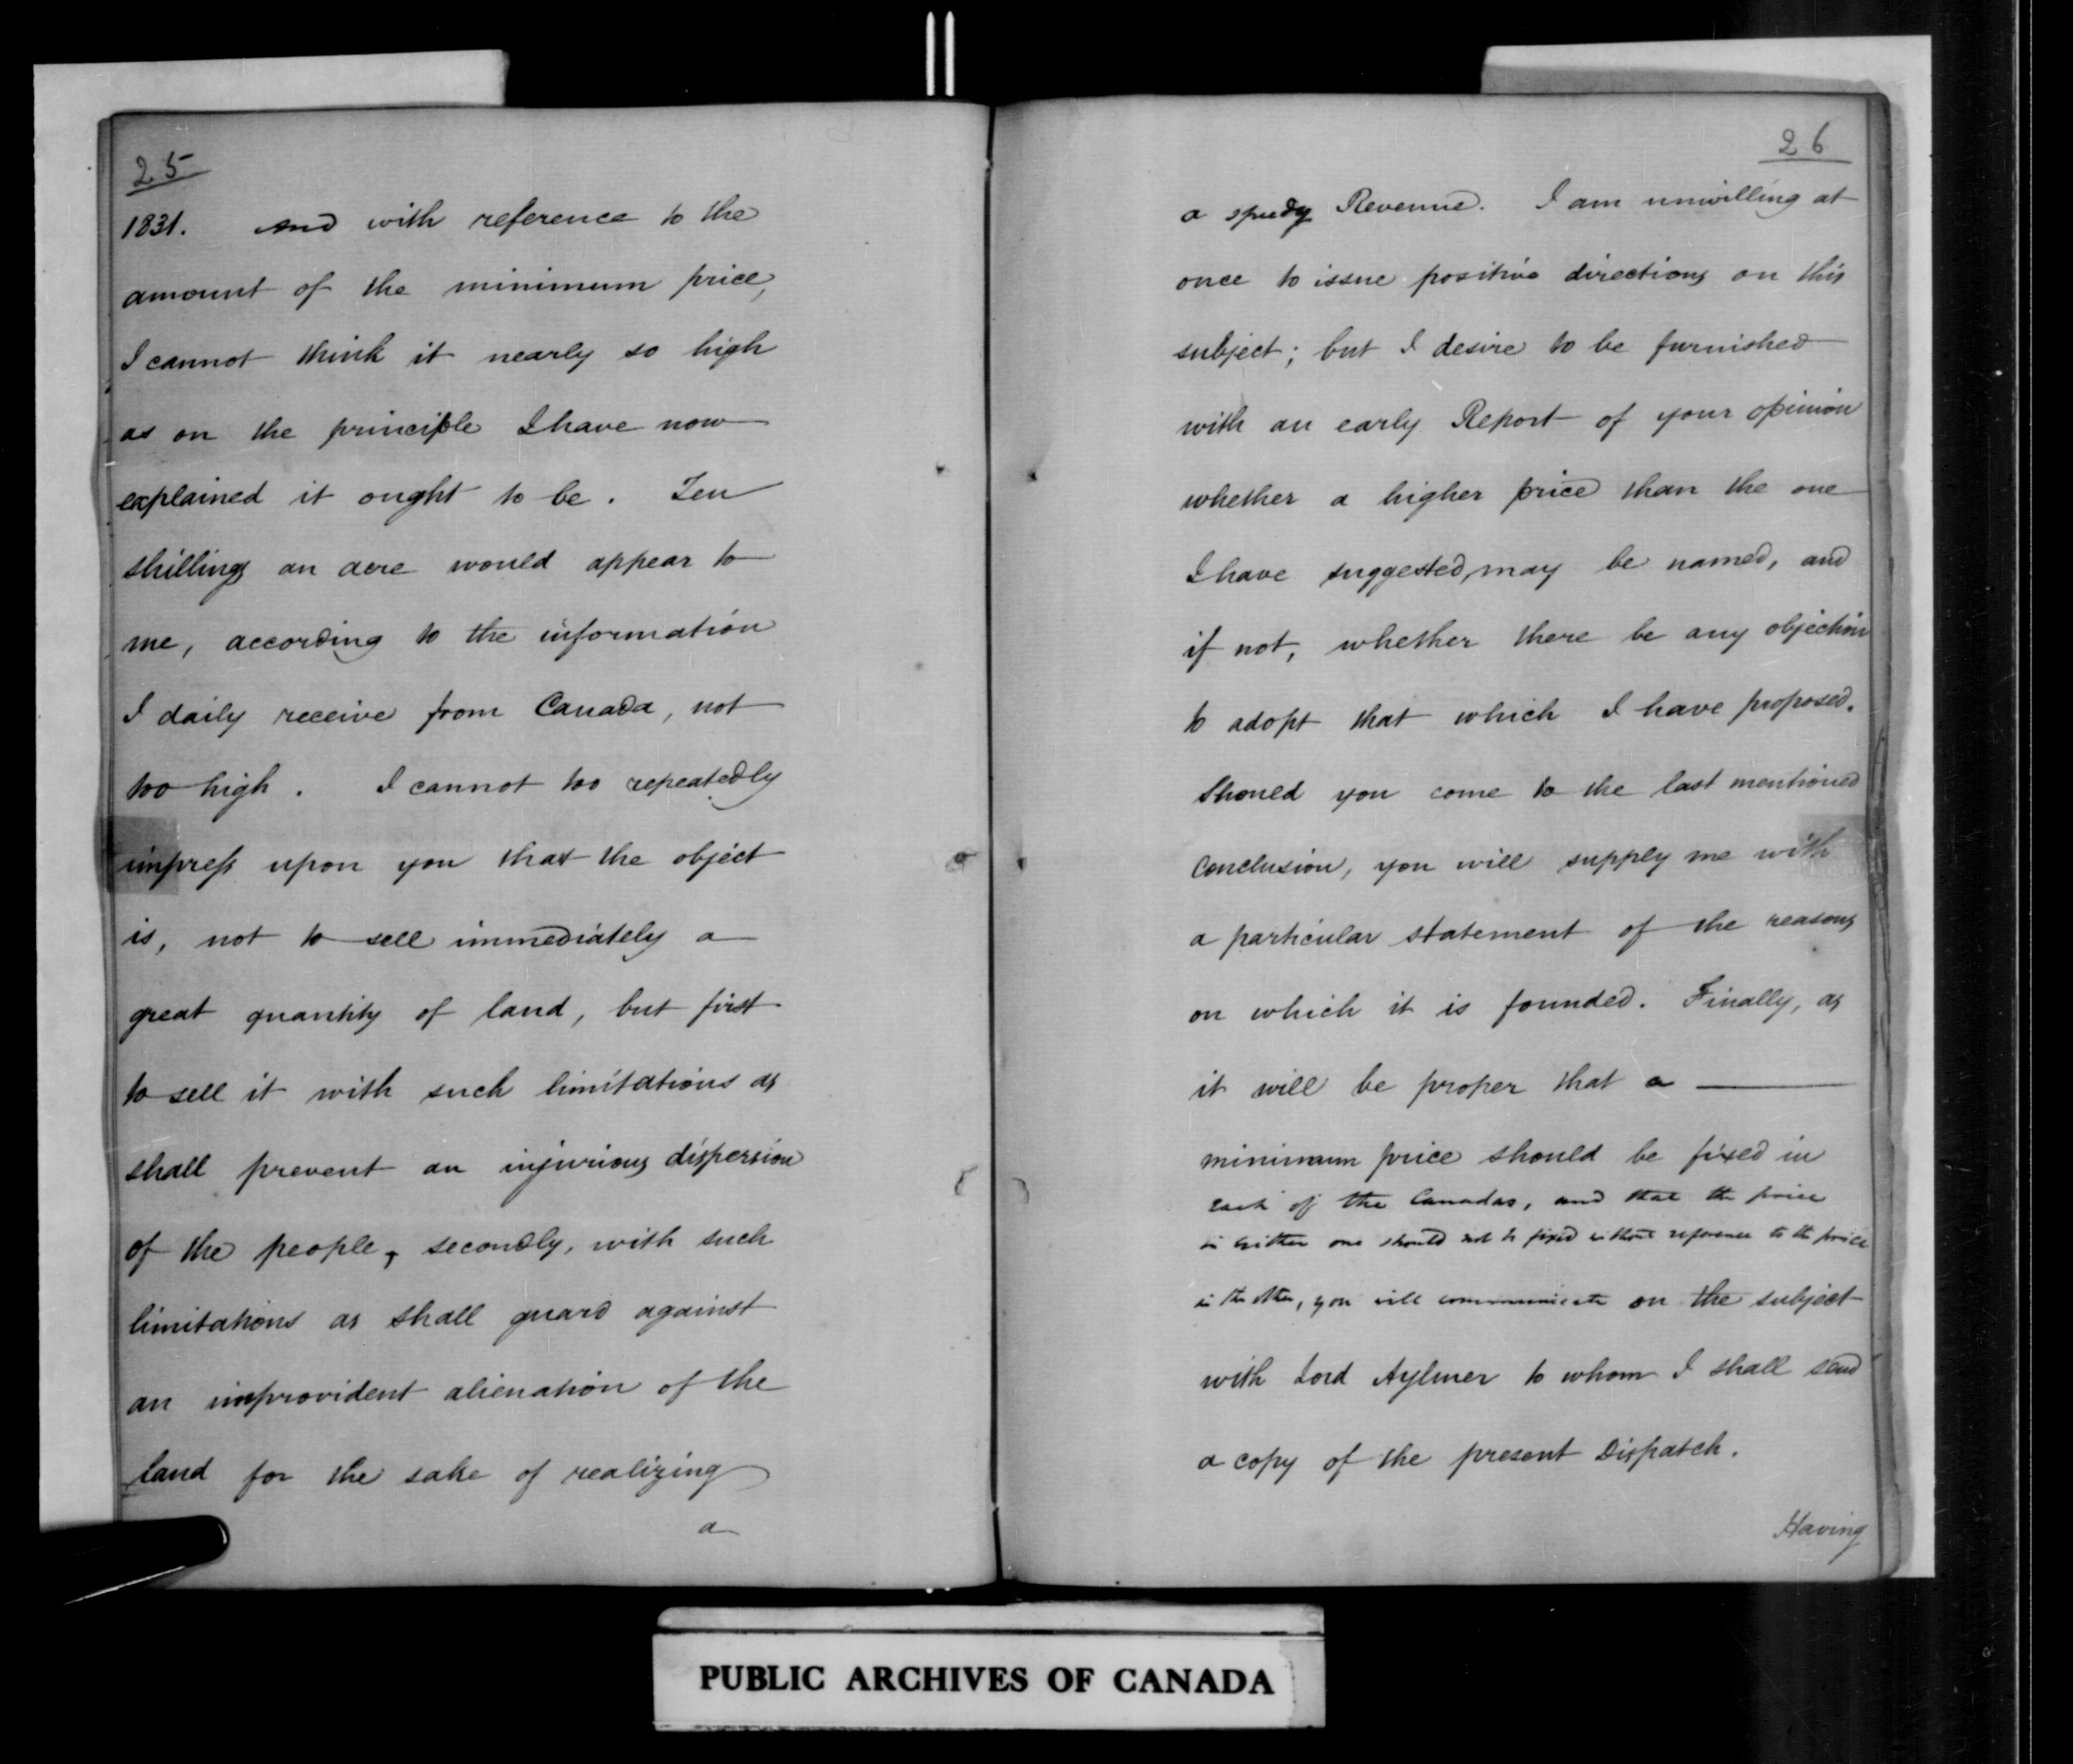 25
1831. And with reference to the
amount of the minimum price,
I cannot think it nearly so high
as on the principle I have now
explained it ought to be. Ten
shillings an acre would appear to
me, according to the information
I daily receive from Canada, not
too high. I cannot too repeatedly
impress upon you that the object
is, not to sell immediately a
great quantity of land, but first
to sell it with such limitations as
shall prevent an injurious dispersion
of the people, secondly, with such
limitations as shall guard against
an improvident alienation of the
land for the sake of realizing
a
26
a speedy Revenue. I am unwilling at
once to issue positive directions on this
subject; but I desire to be furnished
with an early Report of your opinion
whether a higher price than the one
I have suggested, may be named, and
if not, whether there be any objection
to adopt that which I have proposed.
Should you come to the last mentioned
conclusion, you will supply me with
a particular statement of the reasons
on which it is founded. Finally, as
it will be proper that a
minimum price should be fixed in
each of the Canadas, and that the price
in either one should not be fixed without reference to the price
in the other, you will communicate on the subject
with Lord Aylmer to whom I shall send
a copy of the present Dispatch.
Having
PUBLIC ARCHIVES OF CANADA